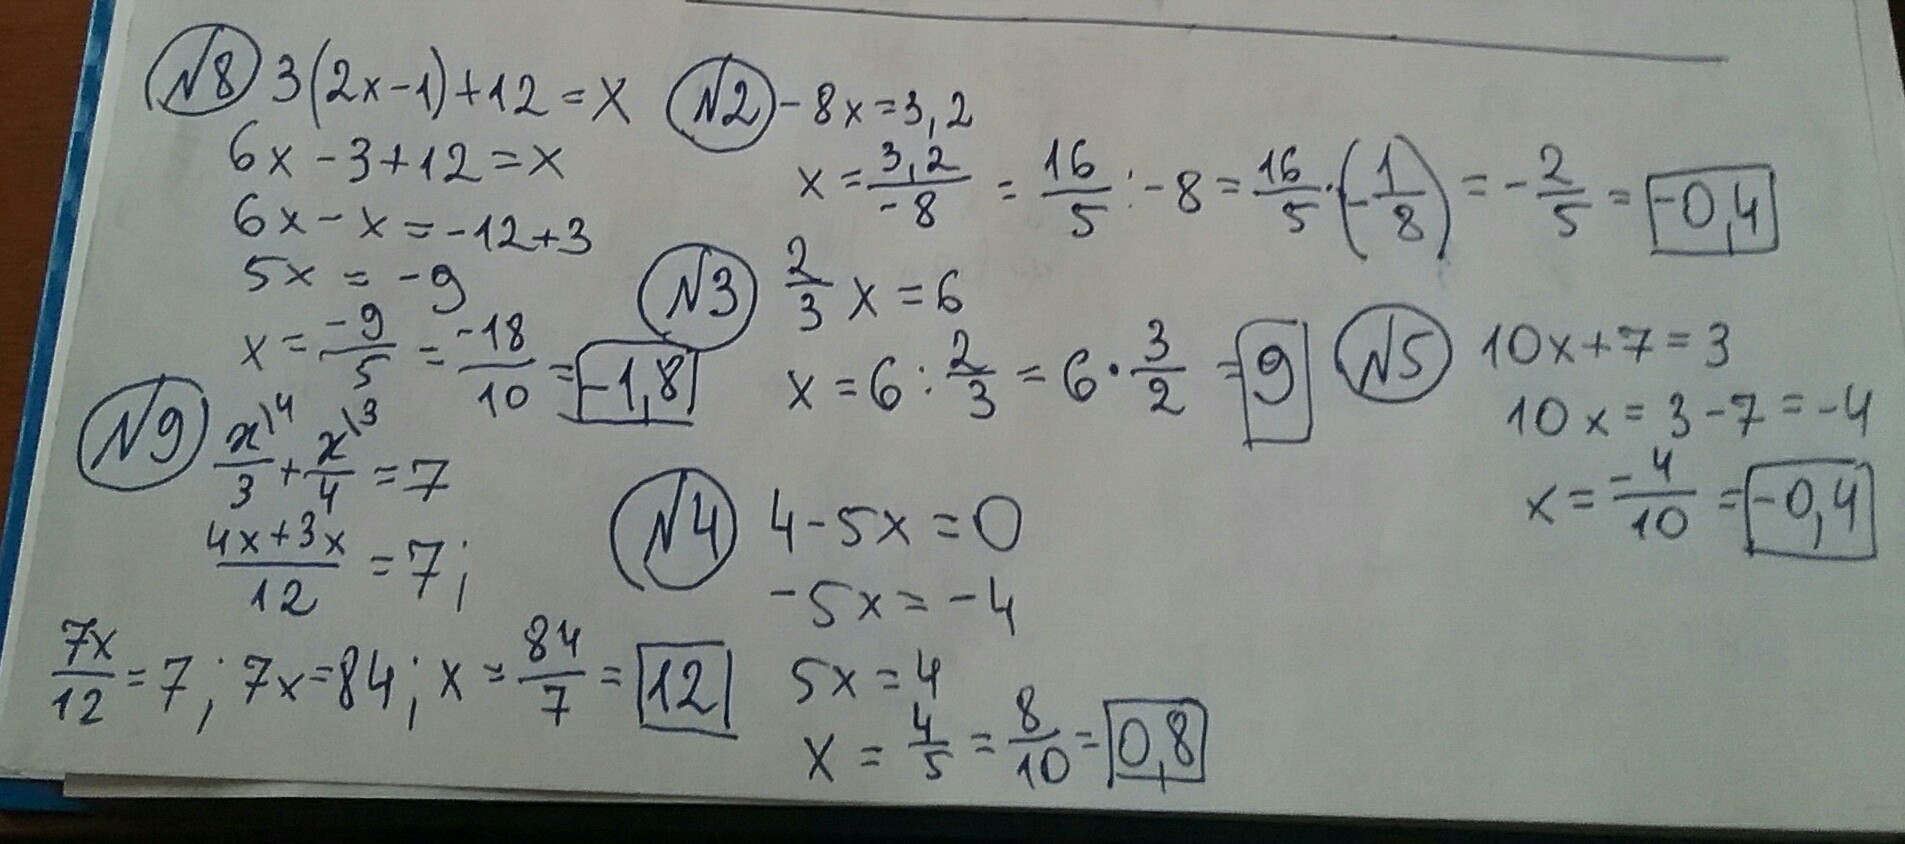 №8 3(2x-1)+12=x
6x-3+12=x
6x-x=-12+3
5x=-9
x=\frac{-9}{5}=\frac{-18}{10}=-1,8
№9 \frac{x\backslash^4}{3}+\frac{x\backslash^3}{4}=7
\frac{4x+3x}{12}=7;
\frac{7x}{12}=7; 7x=84; x=\frac{84}{7}=12
№2 -8x=3,2
x=\frac{3,2}{-8}=\frac{16}{5}:-8=\frac{16}{5}·(-\frac{1}{8})=-\frac{2}{5}=-0,4
№3 \frac{2}{3}x=6
x=6:\frac{2}{3}=6·\frac{3}{2}=9
№4 4-5x=0
-5x=-4
5x=4
x=\frac{4}{5}=\frac{8}{10}=0,8
№5 10x+7=3
10x=3-7=-4
x=\frac{-4}{10}=-0,4